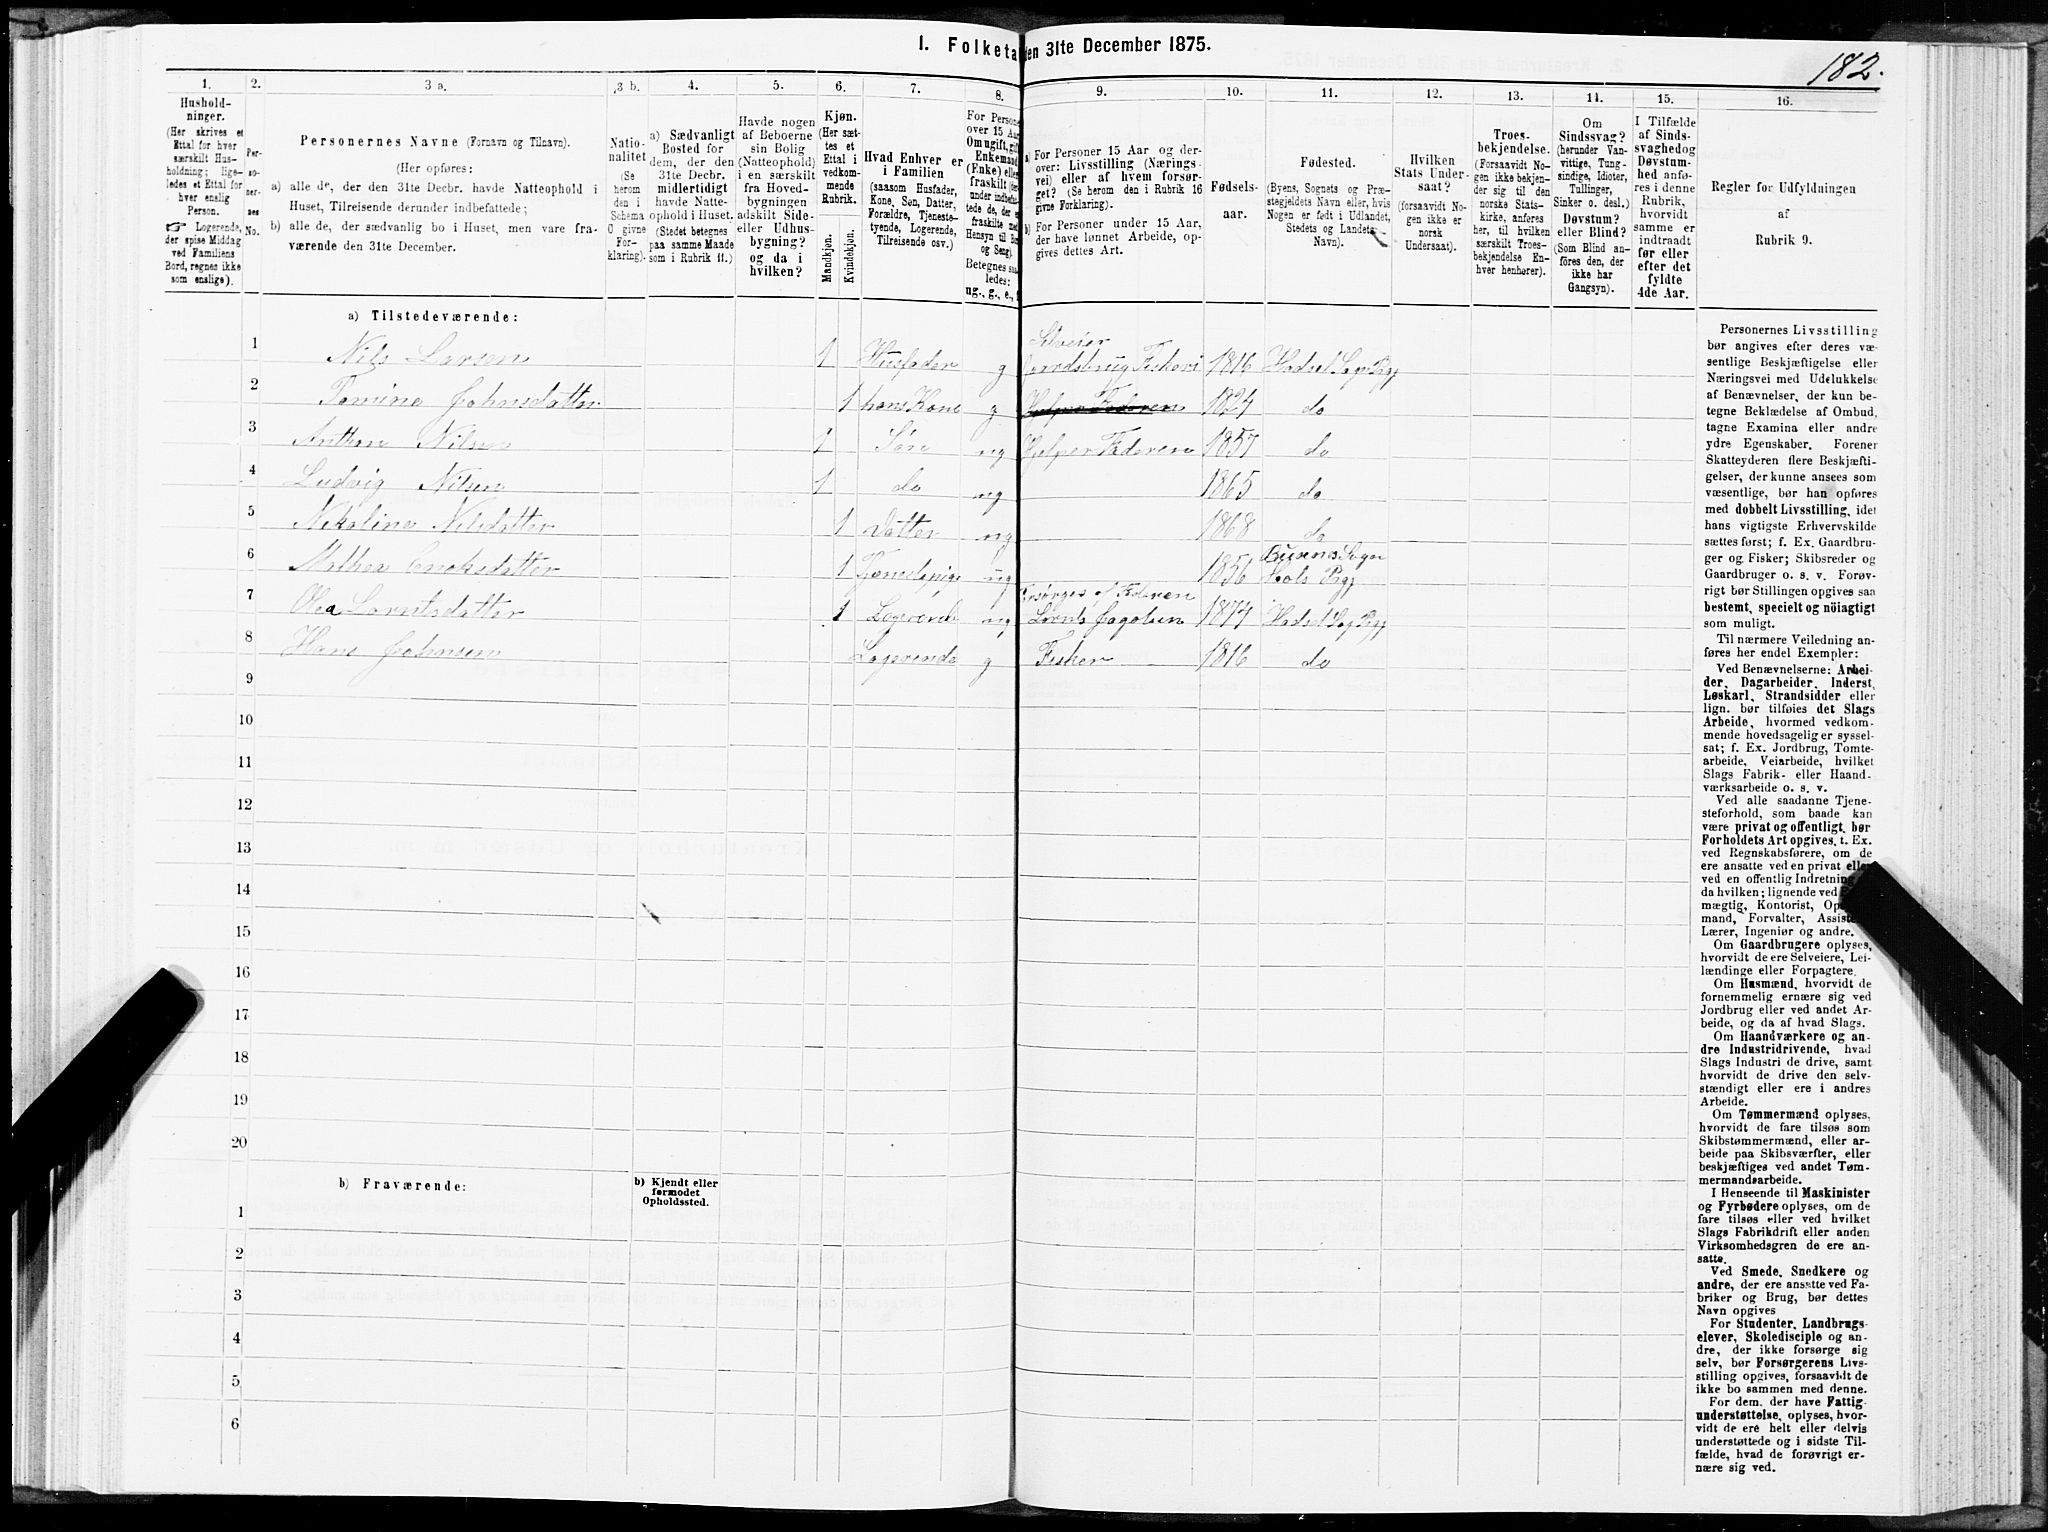 I. Folketa den 31te December 1875.
182.
1.
Hushold-
ninger.
(Her skrives et
Ettal for hver
særskilt Hus-
holdning; lige-
ledes et Ettal for
hver enslig
Person.
☞ Logerende,
der spise Middag
ved Familiens
Bord, regnes ikke
som enslige).
2.
Per-
so-
ner-
nes
No.
3 a.
Personernes Navne (Fornavn og Tilnavn).
(Her opføres:
a) alle de, der den 31te Decbr. havde Natteophold i
Huset, Tilreisende derunder indbefattede;
b) alle de, der sædvanlig bo i Huset, men vare fra-
værende den 31te December.
3 b.
Natio-
nalitet
(Se
herom
den i
Schema
O givne
For-
klaring).
4.
a) Sædvanligt
Bosted for
dem, der den
31te Decbr.
midlertidigt
havde Natte-
ophold i Huset.
(Stedet betegnes
paa samme Maade
som i Rubrik 11.)
5.
Havde nogen
af Beboerne
sin Bolig
(Natteophold)
i en særskilt
fra Hoved-
bygningen
adskilt Side-
eller Udhus-
bygning?
og da i
hvilken?
6.
Kjøn.
(Her sæt-
tes et
Ettal i
vedkom-
mende
Rubrik.
Mandkjøn.
Kvindekjøn.
7.
Hvad Enhver er
i Familien
(saasom Husfader,
Kone, Søn, Datter,
Forældre, Tjeneste-
tyende, Logerende,
Tilreisende osv.)
8.
For Persone
over 15 Aar
Om ugift, gift
Enkemand
(Enke) eller
fraskilt (der
under indbefat-
tede de, der e
fraskilte med
Hensyn til Bo
og Seng).
Betegnes saa
ledes:
ug., g., e.,
9.
a) For Personer 15 Aar og der-
over: Livsstilling (Nærings-
vei) eller af hvem forsør-
get? (Se herom den i Rubrik 16
givne Forklaring).
b) For Personer under 15 Aar,
der have lønnet Arbeide, op-
gives dettes Art.
10.
Fødsels-
aar.
11.
Fødested.
(Byens, Sognets og Præ-
stegjeldets Navn eller, hvis
Nogen er født i Udlandet,
Stedets og Landets
Navn).
12.
Hvilken
Stats Under-
saat?
(forsaavidt No-
gen ikke er
norsk
Undersaat).
13.
Troes-
bekjendelse.
(Forsaavidt No-
gen ikke bekjen-
der sig til den
norske Stats-
kirke, anføres
her, til hvilken
særskilt Troes-
bekjendelse En-
hver henhører).
14.
Om
Sindssvag?
(herunder Van-
vittige, Tung-
sindige, Idioter,
Tullinger,
Sinker o. desl.)
Døvstum?
eller Blind?
(Som Blind an-
føres den, der
ikke har
Gangsyn).
15.
I Tilfælde
af Sinds-
svaghed og
Døvstum-
hed anfø-
res i denne
Rubrik,
hvorvidt
samme er
indtraadt
før eller
efter det
fyldte
4de Aar.
16.
Regler for Udfyldningen
af
Rubrik 9.
a) Tilstedeværende:
1 Nils Larsen 1 Husfader g Selveier Gaardsbrug Fiskeri 1816 Hadsel Sog Pgj
2 Tomine Johnsdatter 1 hans Kone g Hjelper Faderen 1824 do
3 Anthon Nilsen 1 Søn ug Hjelper Faderen 1857 do
4 Ludvig Nilsen 1 do ug 1865 do
5 Nikoline Nilsdatter 1 Datter ug 1868 do
6 Mathea Enoksdatter 1 Tjenestepige ug 1856 Hols Pgj
7 Olea Lorntsdatter 1 Logerende ug Forsørges af Faderen Lornts Jagobsen 1874 Hadsel Sog Pgj
8 Hans Johnsen Logerende g Fisker 1816 do
9
10
11
12
13
14
15
16
17
18
19
20
b) Fraværende:
b) Kjendt eller
formodet
Opholdssted.
1
2
3
4
5
6
Personernes Livsstilling
bør angives efter deres væ-
sentlige Beskjæftigelse eller
Næringsvei med Udelukkelse
af Benævnelser, der kun be-
tegne Beklædelse af Ombud,
tagne Examina eller andre
ydre Egenskaber. Forener
Skatteyderen flere Beskjæfti-
gelser, der kunne ansees som
væsentlige, bør han opføres
med dobbelt Livsstilling, idet
hans vigtigste Erhvervskilde
sættes først; f. Ex. Gaardbru-
ger og Fisker; Skibsreder og
Gaardbruger o. s. v. Forøv-
rigt bør Stillingen opgives saa
bestemt, specielt og nöiagtigt
som muligt.
Til nærmere Veiledning an-
føres her endel Exempler:
Ved Benævnelserne: Arbei-
der, Dagarbeider, Inderst,
Løskarl, Strandsidder eller
lign. bør tilføies det Slags
Arbeide, hvormed vedkom-
mende hovedsagelig er syssel-
sat; f. Ex. Jordbrug, Tomte-
arbeide, Veiarbeide, hvilket
Slags Fabrik- eller Haand-
værksarbeide o. s. v.
Ved alle saadanne Tjene-
steforhold, som baade kan
være privat og offentligt, bør
Forholdets Art opgives, t. Ex.
ved Regnskabsførere, om de
ere ansatte ved en privat eller
ved en offentlig Indretning
da hvilken; lignende ved
mægtig, Kontorist, Op
mand, Forvalter, Assist
Lærer, Ingeniør og andre.
Om Gaardbrugere oplyses,
hvorvidt de ere Selveiere, Lei-
lændinge eller Forpagtere.
Om Husmænd, hvorvidt de
fornemmelig ernære sig ved
Jordbrug eller ved andet Ar-
beide, og da af hvad Slags.
Om Haandværkere og an-
dre Industridrivende, hvad
Slags Industri de drive, samt
hvorvidt de drive den selv-
stændigt eller ere i andres
Arbeide.
Om Tømmermænd oplyses,
hvorvidt de fare tilsøs som
Skibstømmermænd, eller ar-
beide paa Skibsværfter, eller
beskjæftiges ved andet Tøm-
mermandsarbeide.
I Henseende til Maskinister
og Fyrbødere oplyses, om de
fare tilsøs eller ved hvilket
Slags Fabrikdrift eller anden
Virksomhedsgren de ere an-
satte.
Ved Smede, Snedkere og
andre, der ere ansatte ved Fa-
briker og Brug, bør dettes
Navn opgives
For Studenter, Landbrugs-
elever, Skoledisciple og an-
dre, der ikke forsørge sig
selv, bør Forsørgerens Livs-
stilling opgives, forsaavidt de
ikke bo sammen med denne.
For dem, der have Fattig-
understøttelse, oplyses, hvor-
vidt de ere helt eller delvis
understøttede og i sidste Til-
fælde, hvad de forøvrigt er-
nære sig ved.